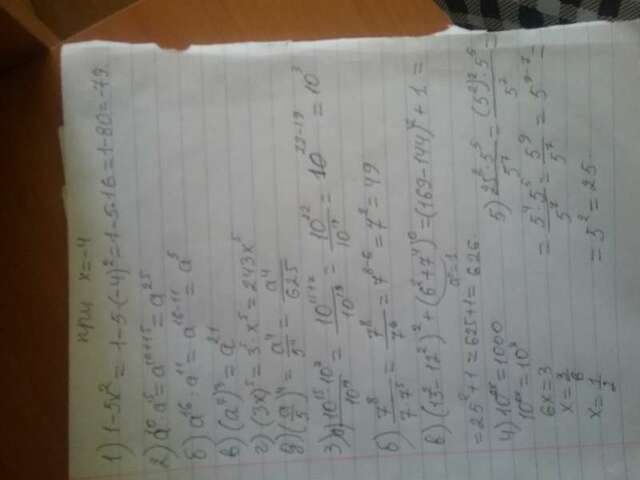 при x=-4
1) 1-5x²=1-5(-4)²=1-5·16=1-80=-79.
2) a¹⁰a¹⁵=a¹⁰⁺¹⁵=a²⁵
б) a¹⁶:a¹¹=a¹⁶⁻¹¹=a⁵
в) (a⁷)³=a²¹
г) (3x)⁵=3⁵·x⁵=243x⁵
д) (a/5)⁴=a⁴/5⁴=a⁴/625
3) а) 10¹⁵·10⁷/10¹⁹=10¹⁵⁺⁷/10¹⁹=10²²/10¹⁹=10²²⁻¹⁹=10³
б) 7⁸/7·7⁵=7⁸/7⁶=7⁸⁻⁶=7²=49
в) (13²-12²)²+(6²+7⁴)⁰=(169-144)²+1=
a⁰=1
=25²+1=625+1=626.
4) 10⁶ˣ=1000
10⁶ˣ=10³
6x=3
x=3/6
x=1/2
5) 25²·5⁵/5⁷=(5²)²·5⁵/5⁷=
=5⁴·5⁵/5⁷=5⁹/5⁷=5⁹⁻⁷=
=5²=25.